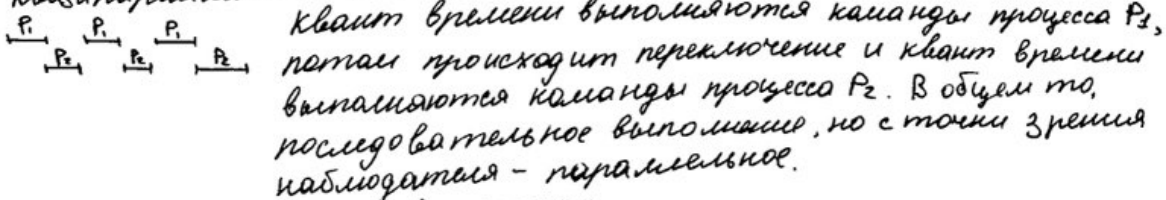 квант времени выполняются команды процесса P1,
P1 P1 P1
P2 P2 P2
потом происходит переключение и квант времени
выполняются команды процесса P2. В общем то,
последовательное выполнение, но с точки зрения
наблюдателя – параллельное.